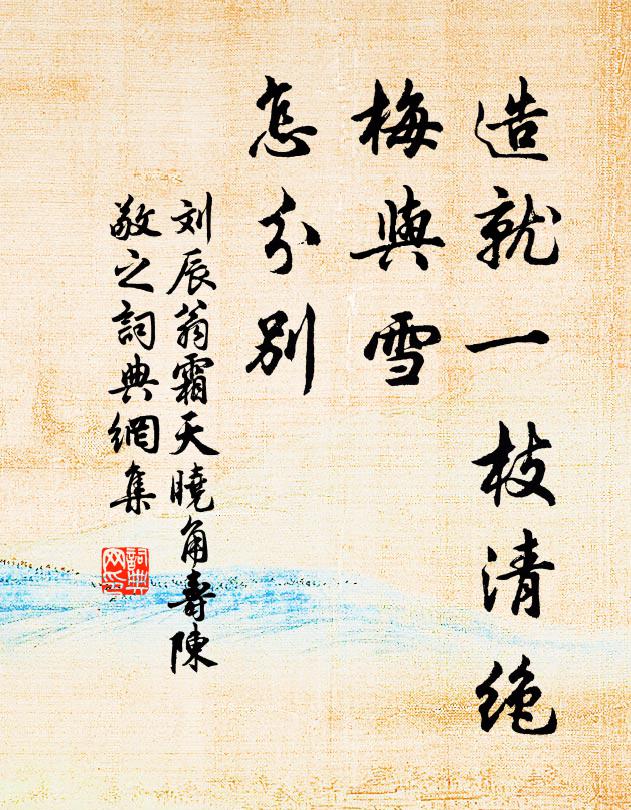 造就一枝清绝
梅與雪
怎分别
刘辰翁霜天曉角壽陳
敬之詞典網集
詞典
网印